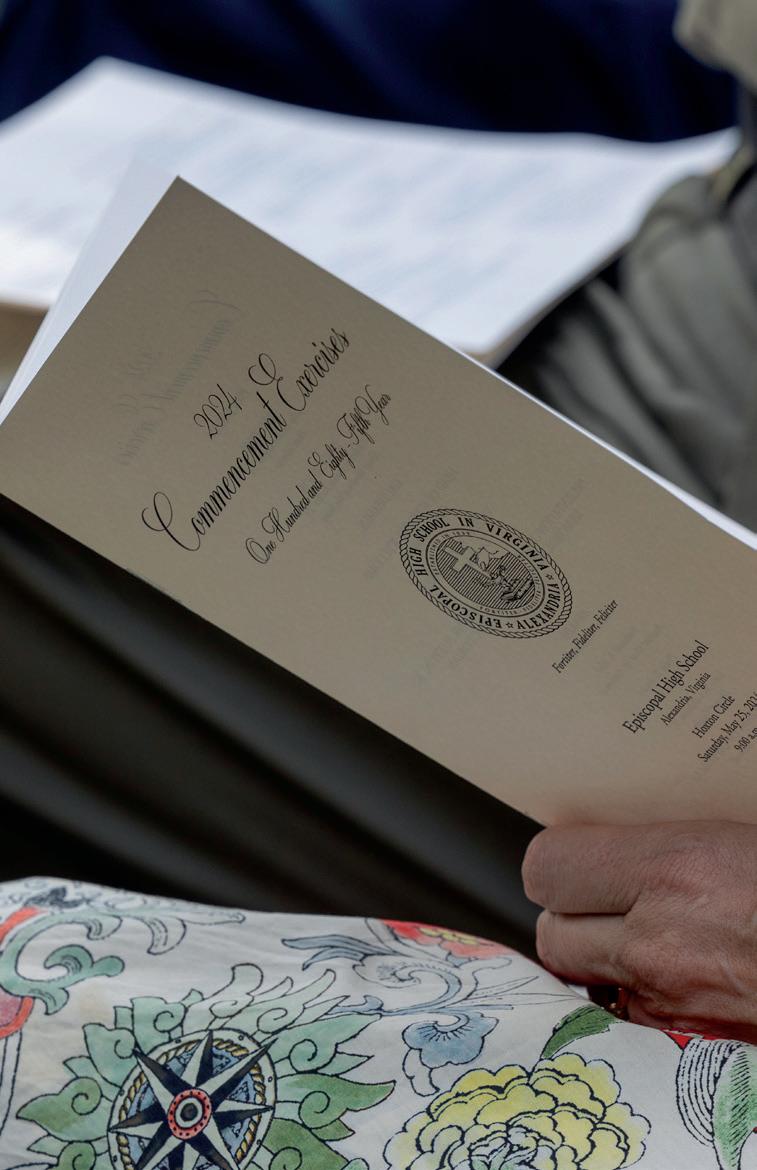 2024
Commencement Exercises
One Hundred and Eighty-Fifth Year
EPISCOPAL HIGH SCHOOL IN VIRGINIA
ALEXANDRIA
Fortiter, Fideliter, Feliciter
Episcopal High School
Alexandria, Virginia
Hoxton Circle
Saturday, May 25, 202
9:00 a.m